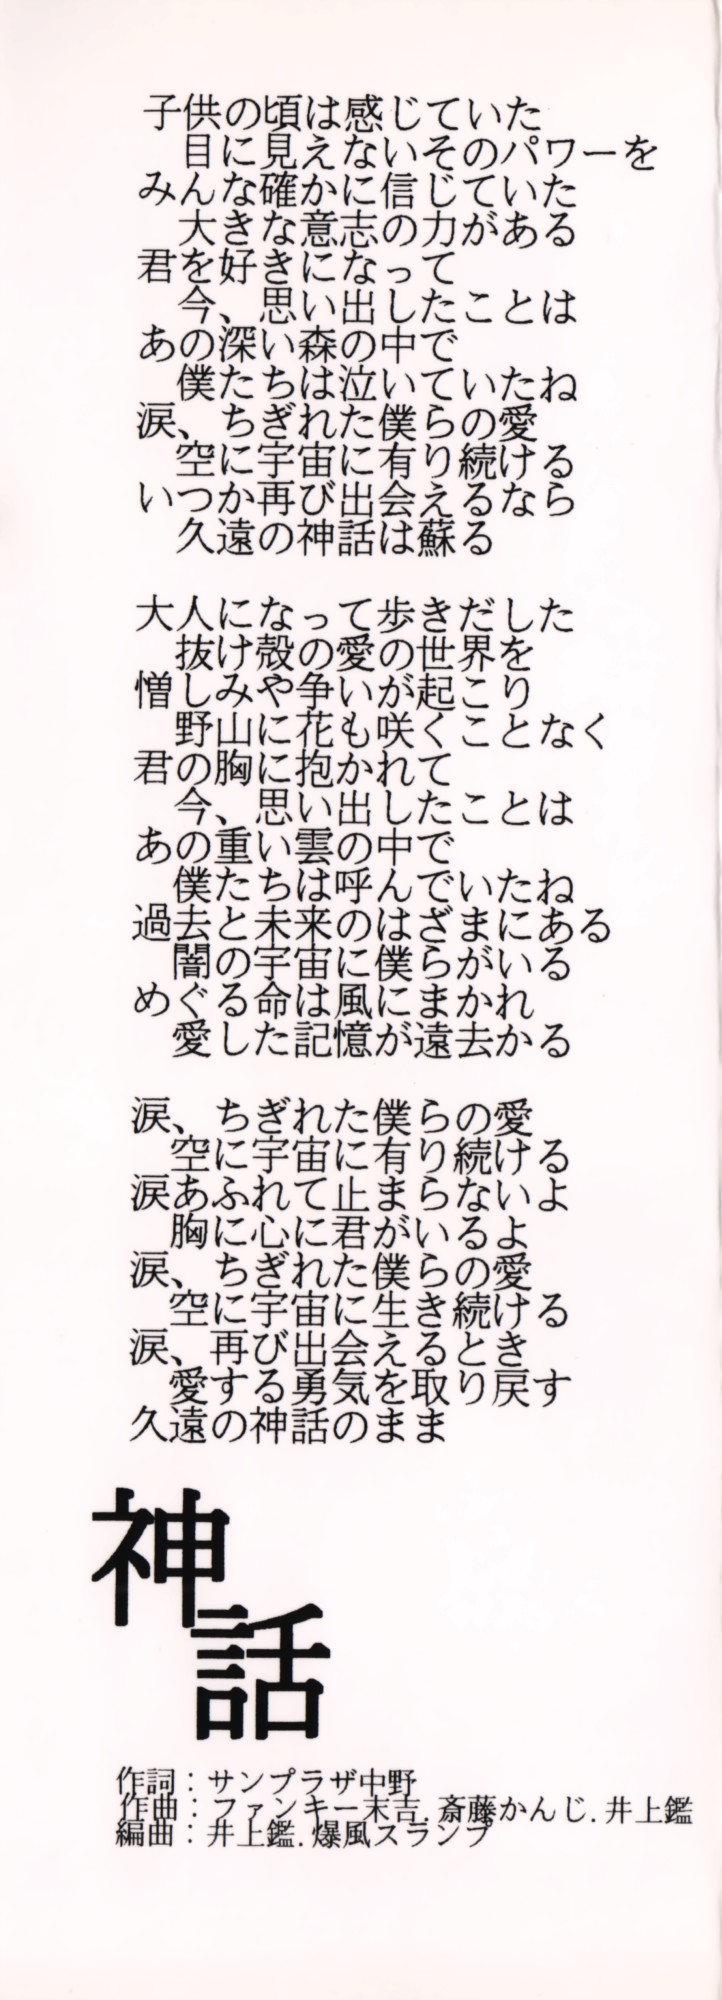 子供の頃は感じていた
目に見えないそのパワーを
みんな確かに信じていた
大きな意志の力がある
君を好きになって
今、思い出したことは
あの深い森の中で
僕たちは泣いていたね
涙、ちぎれた僕らの愛
空に宇宙に有り続ける
いつか再び出会えるなら
久遠の神話は蘇る

大人になって歩きだした
抜け殻の愛の世界を
憎しみや争いが起こり
野山に花も咲くことなく
君の胸に抱かれて
今、思い出したことは
あの重い雲の中で
僕たちは呼んでいたね
過去と未来のはざまにある
闇の宇宙に僕らがいる
めぐる命は風にまかれ
愛した記憶が遠去かる

涙、ちぎれた僕らの愛
空に宇宙に有り続ける
涙あふれて止まらないよ
胸に心に君がいるよ
涙、ちぎれた僕らの愛
空に宇宙に生き続ける
涙、再び出会えるとき
愛する勇気を取り戻す
久遠の神話のまま

神話

作詞：サンプラザ中野
作曲：ファンキー末吉.斎藤かんじ.井上鑑
編曲：井上鑑.爆風スランプ